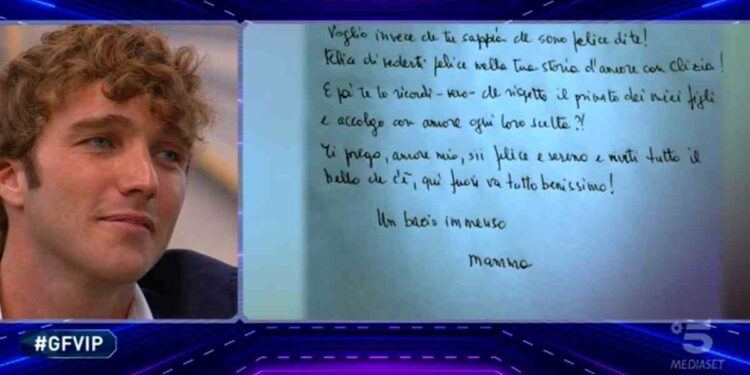 Voglio invece che tu sappia che sono felice di te!
Felice di vederti felice nella tua storia d'amore con Clizia!
E poi te lo ricordi - vero - che rispetto il privato dei miei figli
e accolgo con amore ogni loro scelta?!
Ti prego, amore mio, sii felice e sereno e viviti tutto il
bello che c'è, qui fuori va tutto benissimo!
Un bacio immenso
mamma
#GFVIP
5
MEDIASET